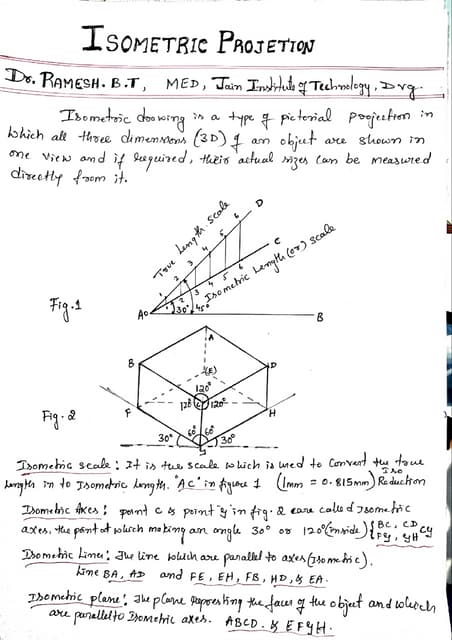 ISOMETRIC PROJETION
Dr. RAMESH. B.T, MED, Jain Institute of Technology, Dvg
Isometric drowing is a type of pictorial projection in
which all three dimensions (3D) of an object are shown in
one view and if required, their actual sizes can be measured
directly from it.
True Length Scale
D
1 2 3 4 5 6
C
1 2 3 4 5 6
Isometric Length (or) Scale
Fig.1
A 30° 45° B
A
B (E) D
120°
120° C 120°
F H
Fig-2
60° 60°
30° G 30°
Isometric Scale: It is the scale which is used to convert the true
length in to Isometric Length. "AC" in figure 1 (1mm = 0.815mm) Iso Reduction
Isometric Axes: point C & point G in fig. 2 are called Isometric
axes, the point at which making an angle 30° or 120° (inside) {BC, CD CG
FG, GH
Isometric Lines: The line which are parallel to axes (Isometric).
Line BA, AD and FE, EH, FB, HD, & EA.
Isometric plane: The plane represting the faces of the object and which
are parallel to Isometric axes. ABCD. & EFGH.